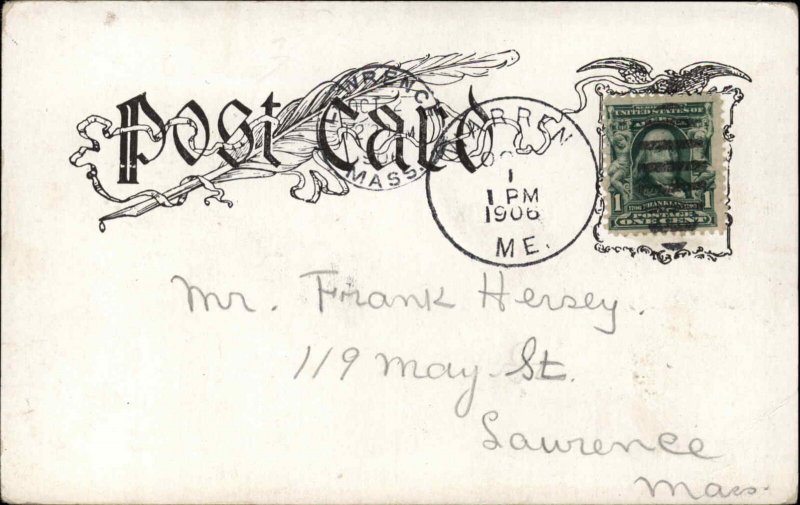 Post Card
LAWRENCE
OCT
MASS
WARREN
1
1 PM
1906
ME.
UNITED STATES OF
1 1706 FRANKLIN 1790 1
POSTAGE
ONE CENT
Mr. Frank Hersey.
119 May St.
Lawrence
Mass.